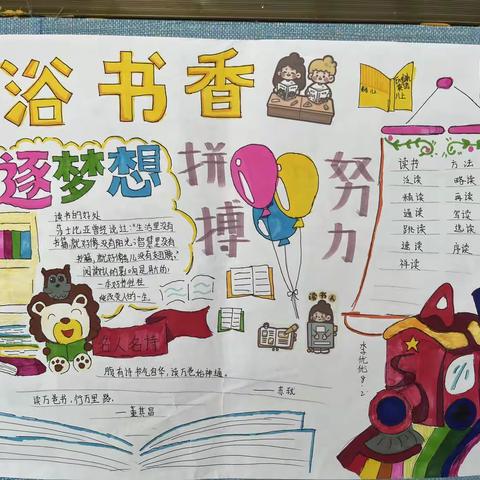 浴书香
逐梦想
拼搏
努力
读书的好处
莎士比亚曾经说过:"生活里没有
书籍,就好像没有阳光;智慧里没有
书籍,就好像鸟儿没有翅膀。"
阅读对人的影响是
一本好书往往
能改变人的一生。
名人名诗
腹有诗书气自华,读万卷始神通。
——苏轼
读万卷书,行万里路。
——董其昌
读书人
读书 方法
泛读 略读
精读 再读
通读 写读
跳读 选读
速读 序读
李优优8.2